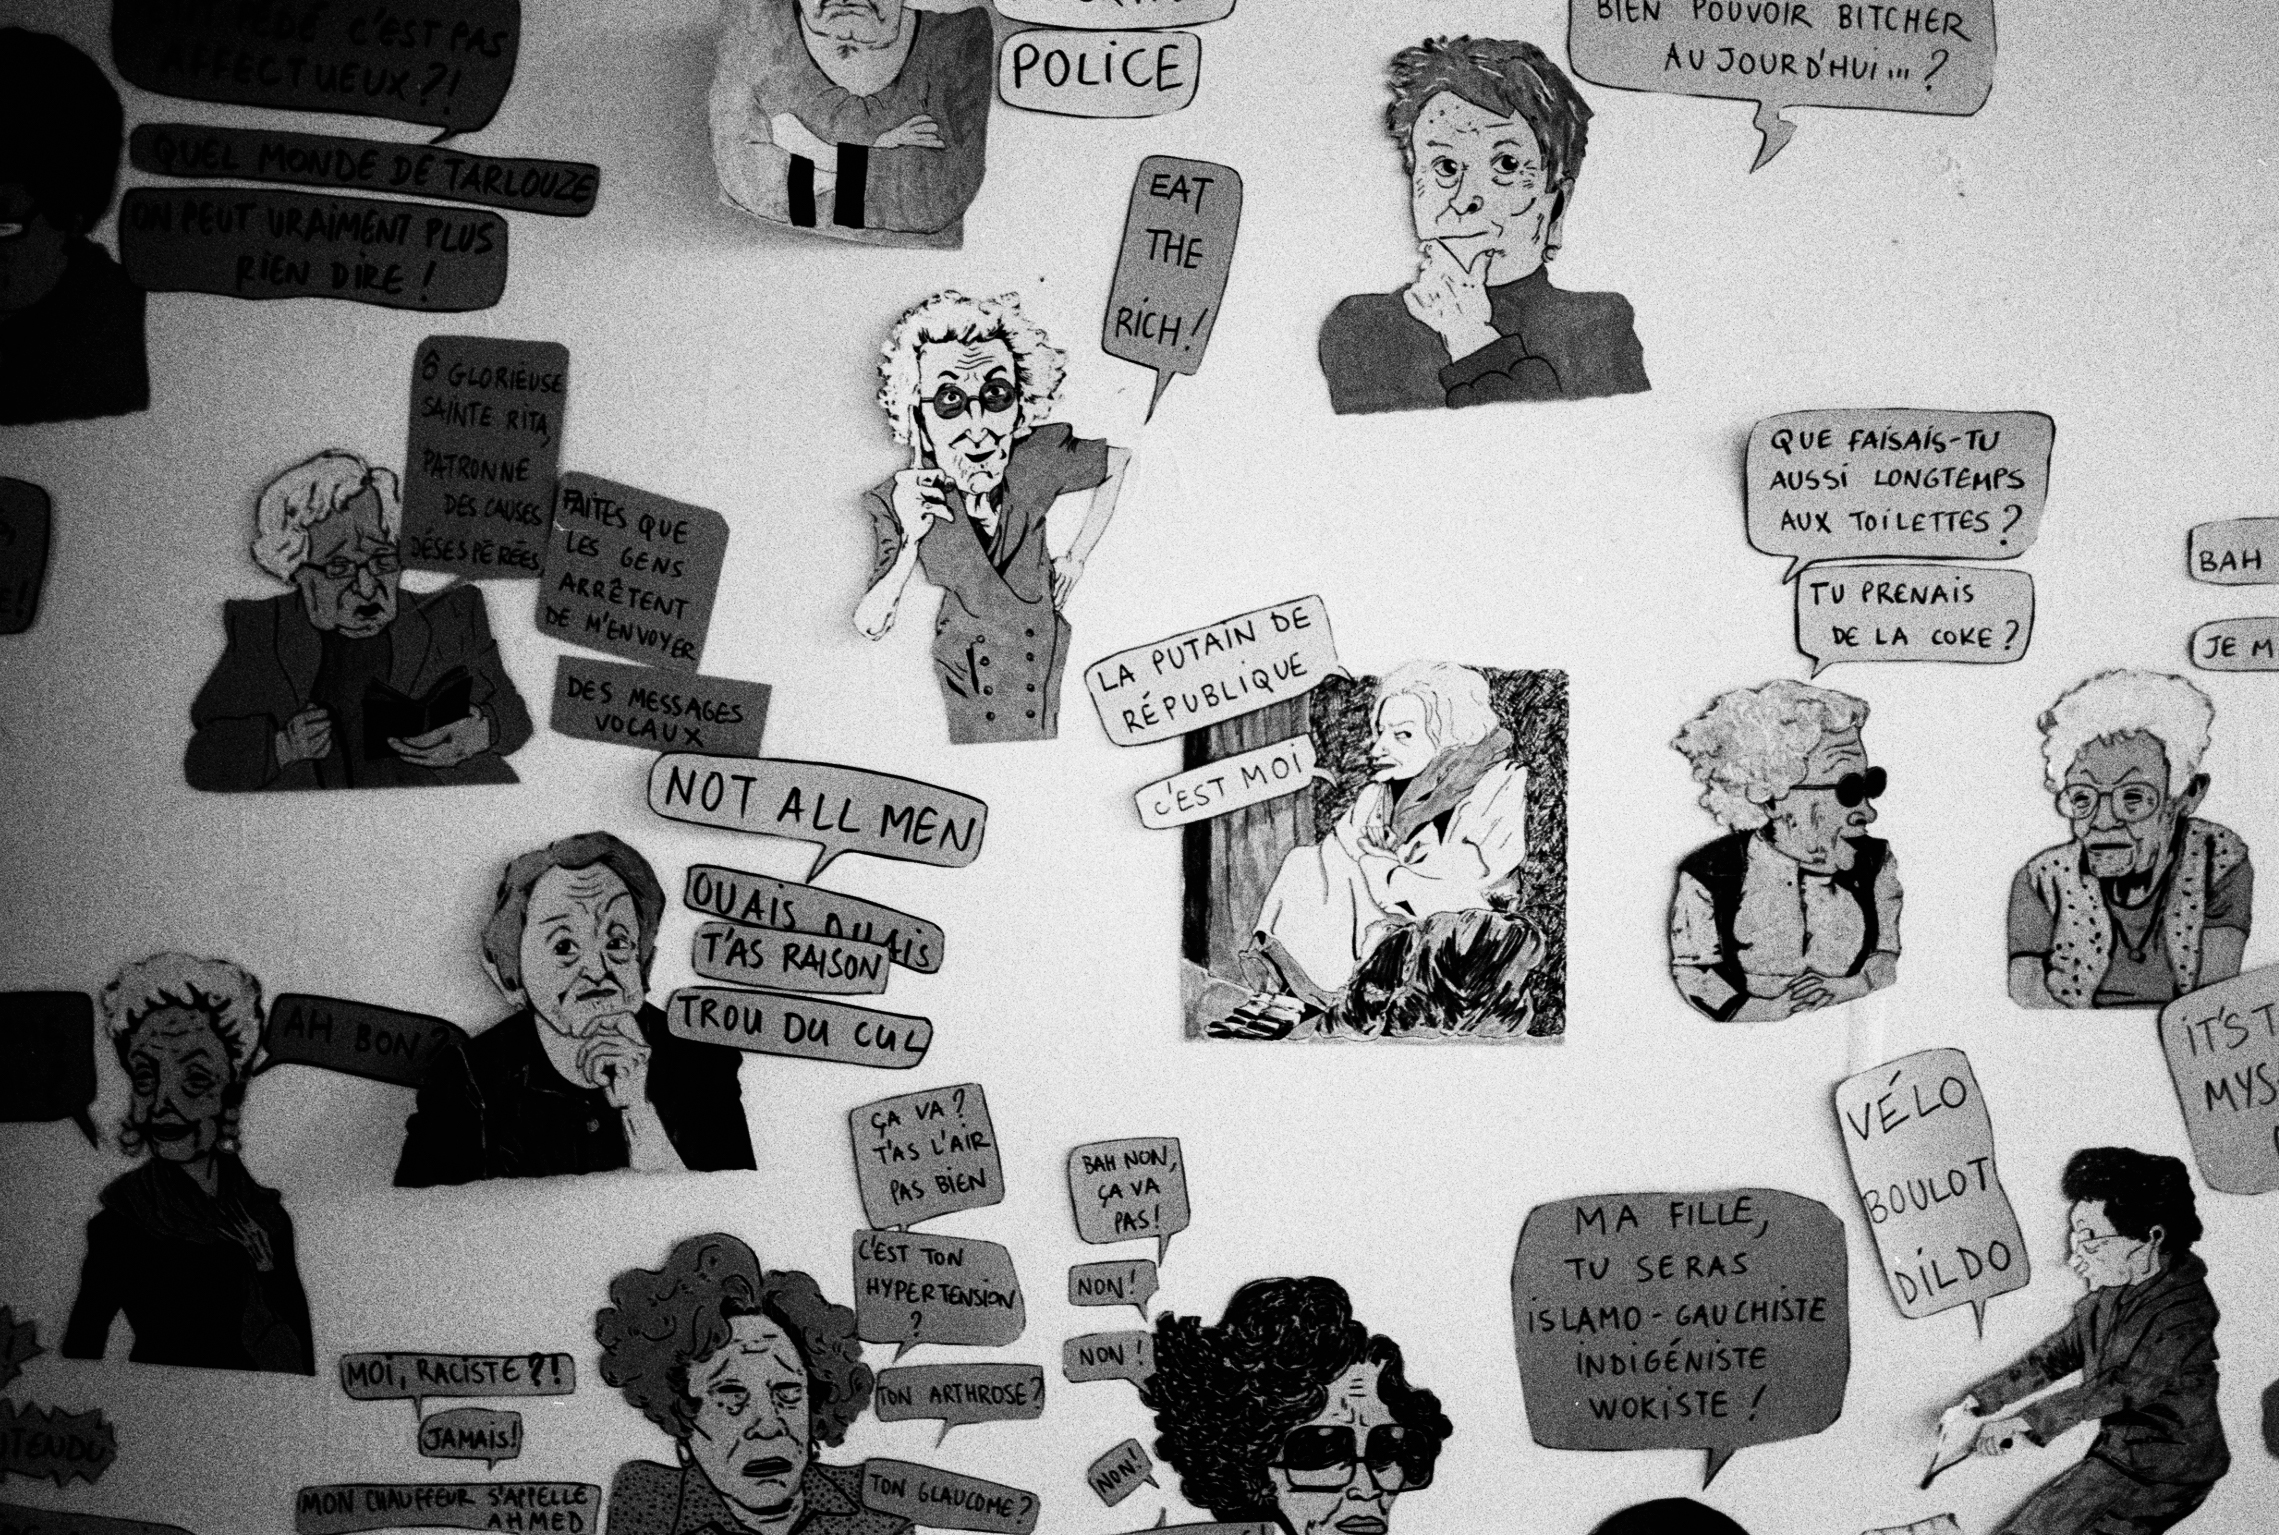 PÉDÉ C'EST PAS
AFFECTUEUX?!
QUEL MONDE DE TARLOUZE
ON PEUT VRAIMENT PLUS
RIEN DIRE !
POLICE
BIEN POUVOIR BITCHER
AUJOURD'HUI... ?
EAT
THE
RICH!
Ô GLORIEUSE
SAINTE RITA,
PATRONNE
DES CAUSES
DÉSESPÉRÉES,
FAITES QUE
LES GENS
ARRÊTENT
DE M'ENVOYER
DES MESSAGES
VOCAUX
QUE FAISAIS-TU
AUSSI LONGTEMPS
AUX TOILETTES ?
TU PRENAIS
DE LA COKE ?
BAH
JE M
LA PUTAIN DE
RÉPUBLIQUE
C'EST MOI
NOT ALL MEN
OUAIS OUAIS
T'AS RAISON
TROU DU CUL
AH BON?
IT'S T
MYS
VÉLO
BOULOT
DILDO
ÇA VA ?
T'AS L'AIR
PAS BIEN
C'EST TON
HYPERTENSION
?
TON ARTHROSE?
TON GLAUCOME ?
BAH NON,
ÇA VA
PAS!
NON!
NON!
NON!
MA FILLE,
TU SERAS
ISLAMO-GAUCHISTE
INDIGÉNISTE
WOKISTE !
MOI, RACISTE ?!
JAMAIS!
MON CHAUFFEUR S'APPELLE
AHMED